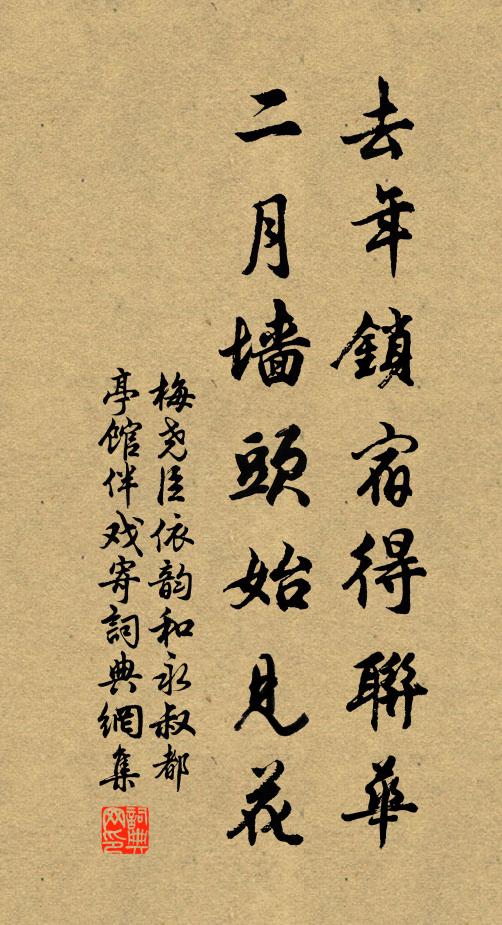 去年鎖宿得聯華
二月墙頭始見花
梅尧臣依韵和永叔都
亭馆伴戏寄詞典網集
詞典网印